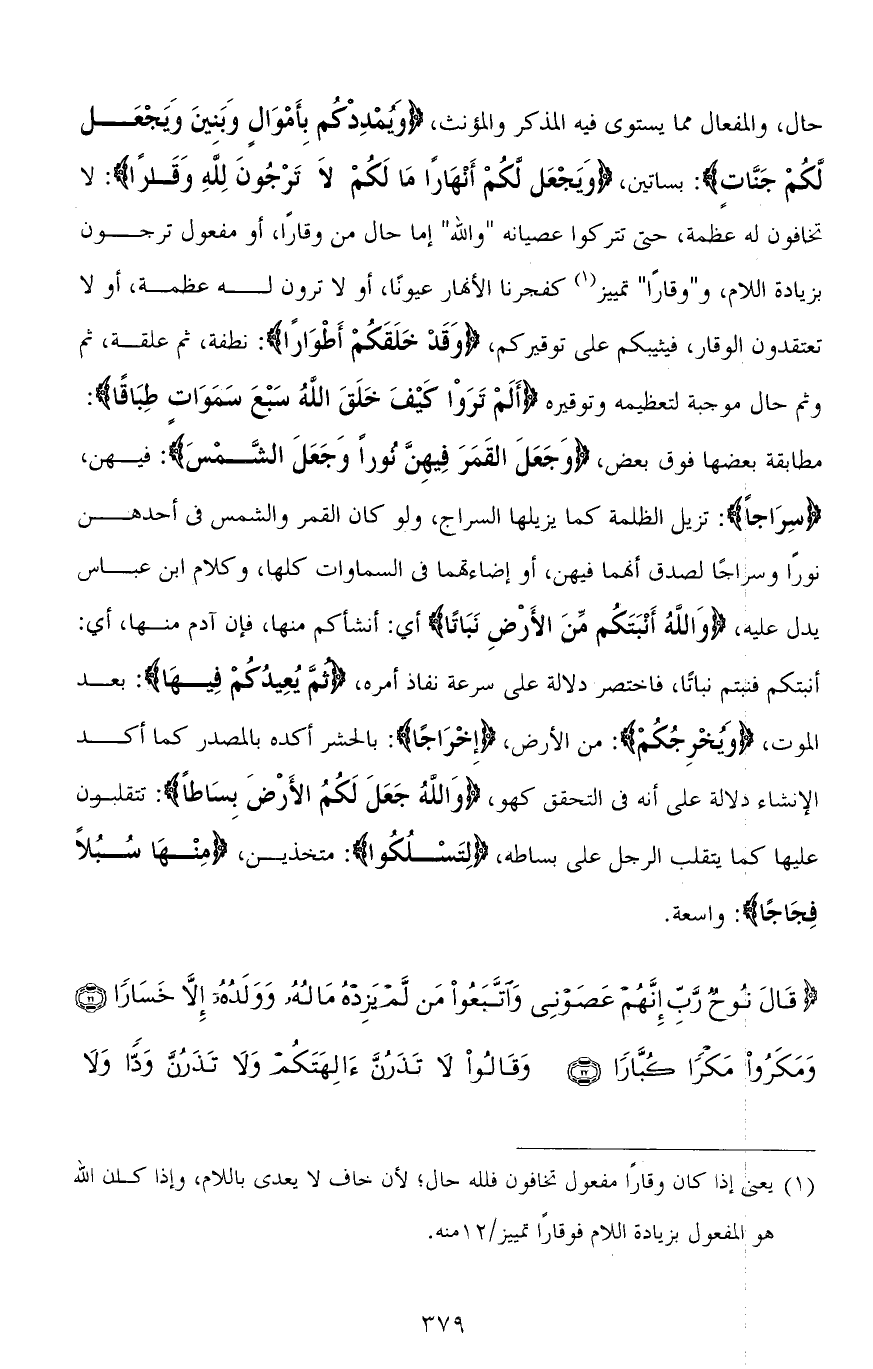 حال، والمفعال مما يستوى فيه المذكر والمؤنث، ﴿وَيُمْدِدْكُم بِأَمْوَالٍ وَبَنِينَ وَيَجْعَل
لَّكُمْ جَنَّاتٍ﴾: بساتين، ﴿وَيَجْعَل لَّكُمْ أَنْهَارًا مَا لَكُمْ لاَ تَرْجُونَ لِلَّهِ وَقَارًا﴾: لا
تخافون له عظمة، حتى تتركوا عصيانه "والله" إما حال من وقارًا، أو مفعول ترجون
بزيادة اللام، و"وقارًا" تمييز(١) كفجرنا الأنهار عيونًا، أو لا ترون له عظمة، أو لا
تعتقدون الوقار، فيثيبكم على توقيركم، ﴿وَقَدْ خَلَقَكُمْ أَطْوَارًا﴾: نطفة، ثم علقة، ثم
وثم حال موجبة لتعظيمه وتوقيره ﴿أَلَمْ تَرَوْا كَيْفَ خَلَقَ اللَّهُ سَبْعَ سَمَوَاتٍ طِبَاقًا﴾:
مطابقة بعضها فوق بعض، ﴿وَجَعَلَ القَمَرَ فِيهِنَّ نُوراً وَجَعَلَ الشَّمْسَ﴾: فيهن،
﴿سِرَاجاً﴾: تزيل الظلمة كما يزيلها السراج، ولو كان القمر والشمس فى أحدهن
نورًا وسراجًا لصدق أنهما فيهن، أو إضاءتهما فى السماوات كلها، وكلام ابن عباس
يدل عليه، ﴿وَاللَّهُ أَنْبَتَكُم مِّنَ الأَرْضِ نَبَاتًا﴾ أي: أنشأكم منها، فإن آدم منها، أي:
أنبتكم فنبتم نباتًا، فاختصر دلالة على سرعة نفاذ أمره، ﴿ثُمَّ يُعِيدُكُمْ فِيهَا﴾: بعد
الموت، ﴿وَيُخْرِجُكُمْ﴾: من الأرض، ﴿إِخْرَاجًا﴾: بالحشر أكده بالمصدر كما أكد
الإنشاء دلالة على أنه فى التحقق كهو، ﴿وَاللَّهُ جَعَلَ لَكُمُ الأَرْضَ بِسَاطاً﴾: تتقلبون
عليها كما يتقلب الرجل على بساطه، ﴿لِتَسْلُكُوا﴾: متخذين، ﴿مِنْهَا سُبُلاً
فِجَاجًا﴾: واسعة.
﴿ قَالَ نُوحٌ رَّبِّ إِنَّهُمْ عَصَوْنِى وَٱتَّبَعُواْ مَن لَّمْ يَزِدْهُ مَالُهُۥ وَوَلَدُهُۥٓ إِلَّا خَسَارًا ٢١
وَمَكَرُواْ مَكْرًا كُبَّارًا ٢٢ وَقَالُواْ لَا تَذَرُنَّ ءَالِهَتَكُمْ وَلَا تَذَرُنَّ وَدًّا وَلَا
(١) يعنى إذا كان وقارًا مفعول تخافون فلله حال؛ لأن خاف لا يعدى باللام، وإذا كلن الله
هو المفعول بزيادة اللام فوقارًا تمييز/١٢منه.
٣٧٩